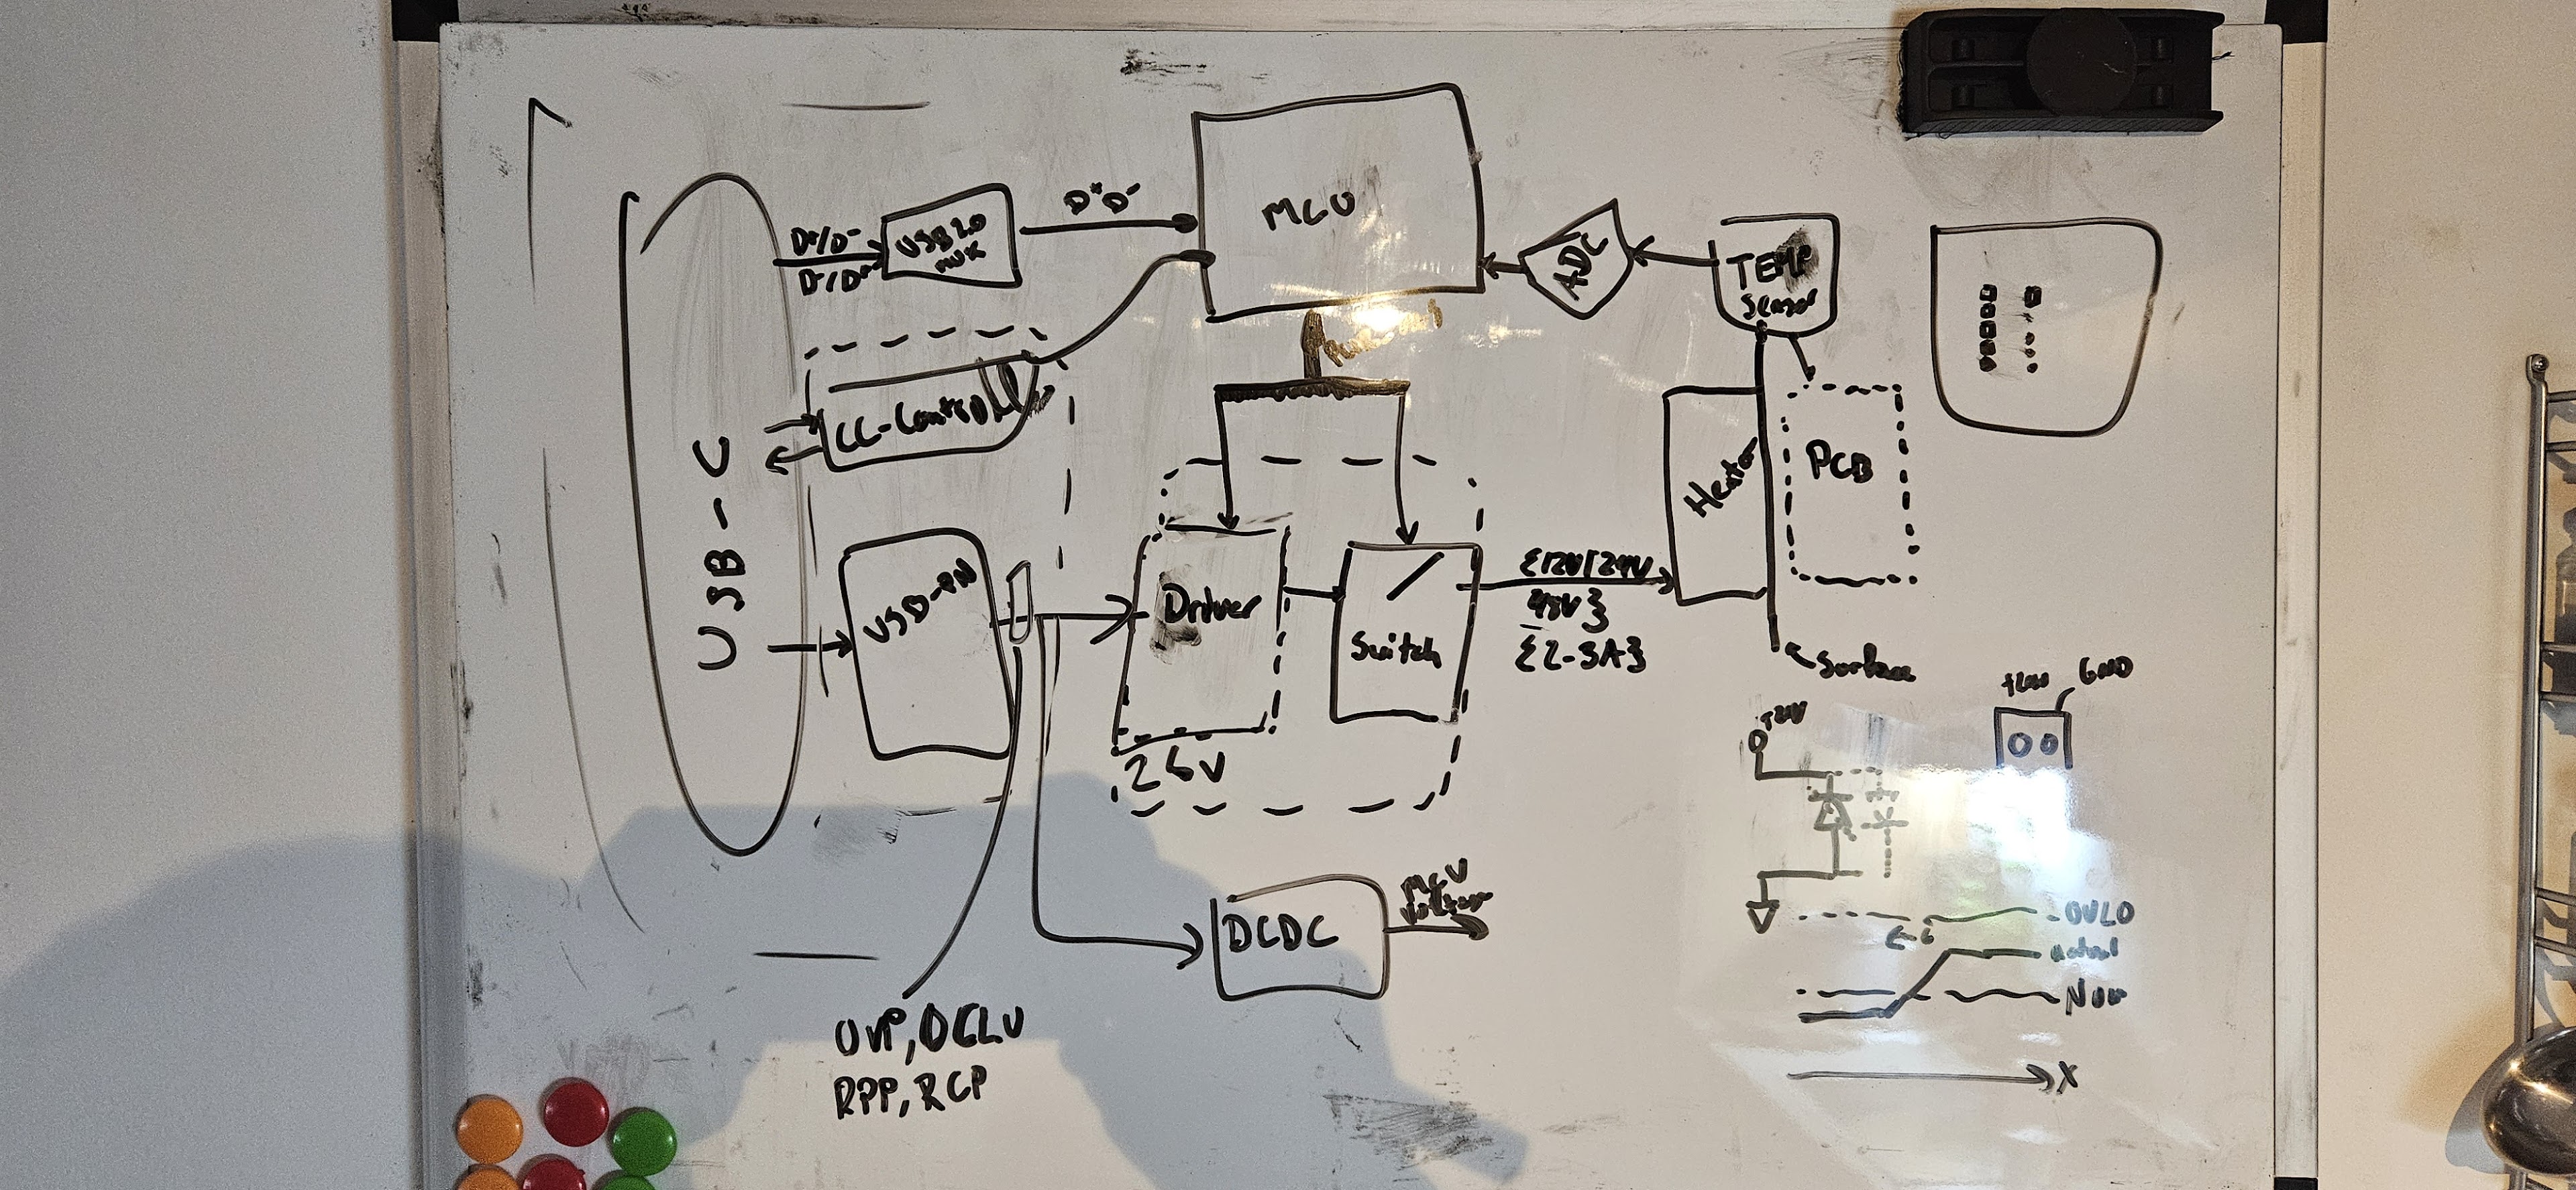 D+/D-
D-/D+
USB 2.0
MUX
D+ D-
MCU
ADC
TEMP
Sensor
CC-Control
USB-C
USB-PD
Driver
26V
Switch
{12V/24V
48V}
{2-3A}
Heater
PCB
Surface
GND
+24V
DCDC
MCU
Voltage
OVP, OCLV
RPP, RCP
OVLO
actual
Nom
X